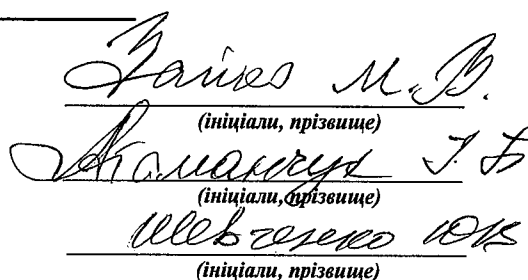 Заїко М.В.
(ініціали, прізвище)
Атаманчук І.Б
(ініціали, прізвище)
Шевченко ЮВ
(ініціали, прізвище)